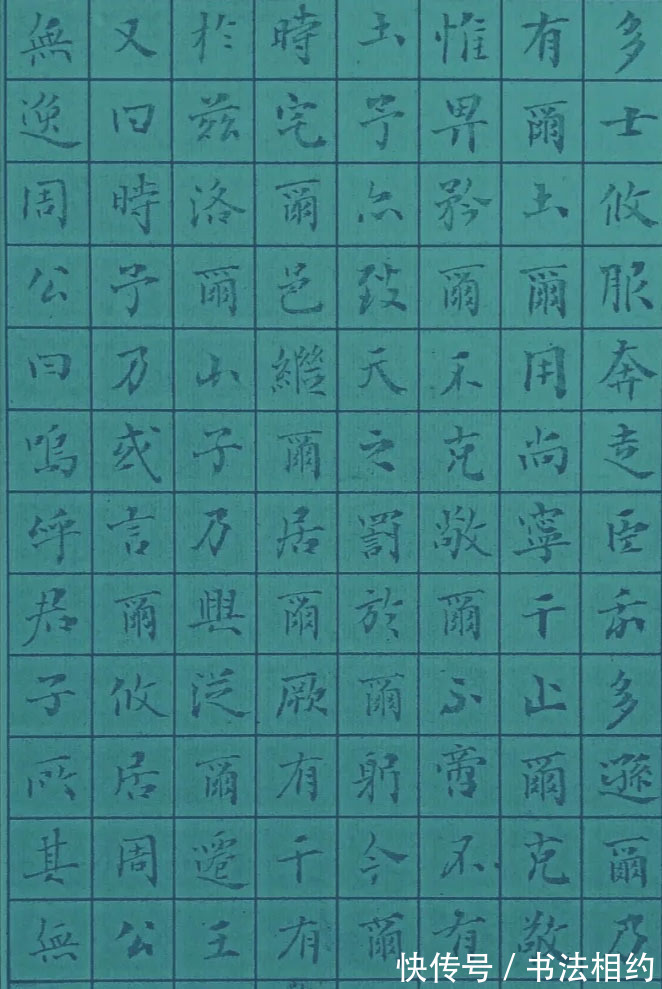 多士攸服奔走臣我多遜爾乃
有爾土爾用尚寧干止爾克敬
惟畀矜爾不克敬爾不啻不有
土予亦致天之罰於爾躬今爾
時宅爾邑繼爾居爾厥有干有
於兹洛爾小子乃興從爾遷王
又曰時予乃或言爾攸居周公
無逸周公曰嗚呼君子所其無
快传号 / 书法相约